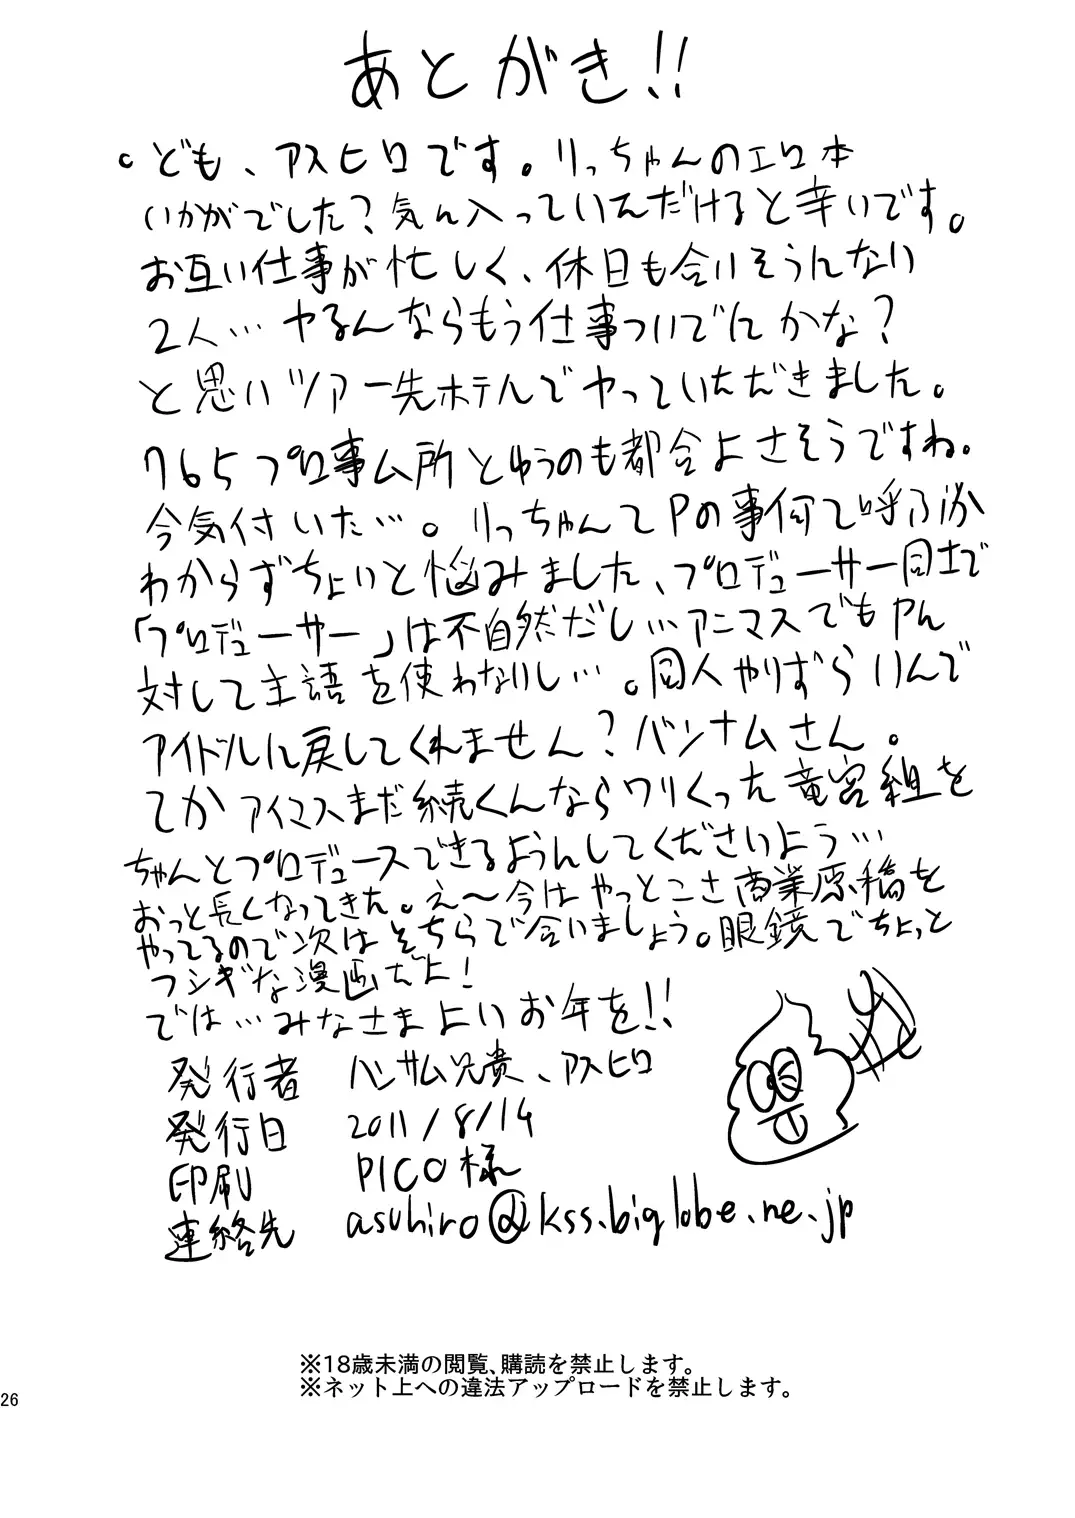 あとがき!!
。ども、アスヒロです。りっちゃんのエロ本
いかがでした?気に入っていただけると幸いです。
お互い仕事が忙しく、休日も合いそうにない
2人…ヤるんならもう仕事ついでにかな?
と思いツアー先ホテルでヤっていただきました。
765プロ事ム所とゆうのも都合よさそうですね。
今気付いた…。りっちゃんてPの事何て呼ぶか
わからずちょいと悩みました、プロデューサー同士で
「プロデューサー」は不自然だし…アニマスでもPん
対して主語を使わないし…。同人やりずらいんで
アイドルに戻してくれません?バンナムさん。
てかアイマスまだ続くんならワりくった竜宮組を
ちゃんとプロデュースできるようにしてくださいよう…
おっと長くなってきた。え〜今はやっとこさ商業原稿を
やってるので次はそちらで会いましょう。眼鏡でちょっと
フシギな漫画だよ!
では…みなさまよいお年を!!
発行者 ハンサム兄貴、アスヒロ
発行日 2011/8/14
印刷 PICO様
連絡先 asuhiro@kss.biglobe.ne.jp
※18歳未満の閲覧、購読を禁止します。
※ネット上への違法アップロードを禁止します。
26